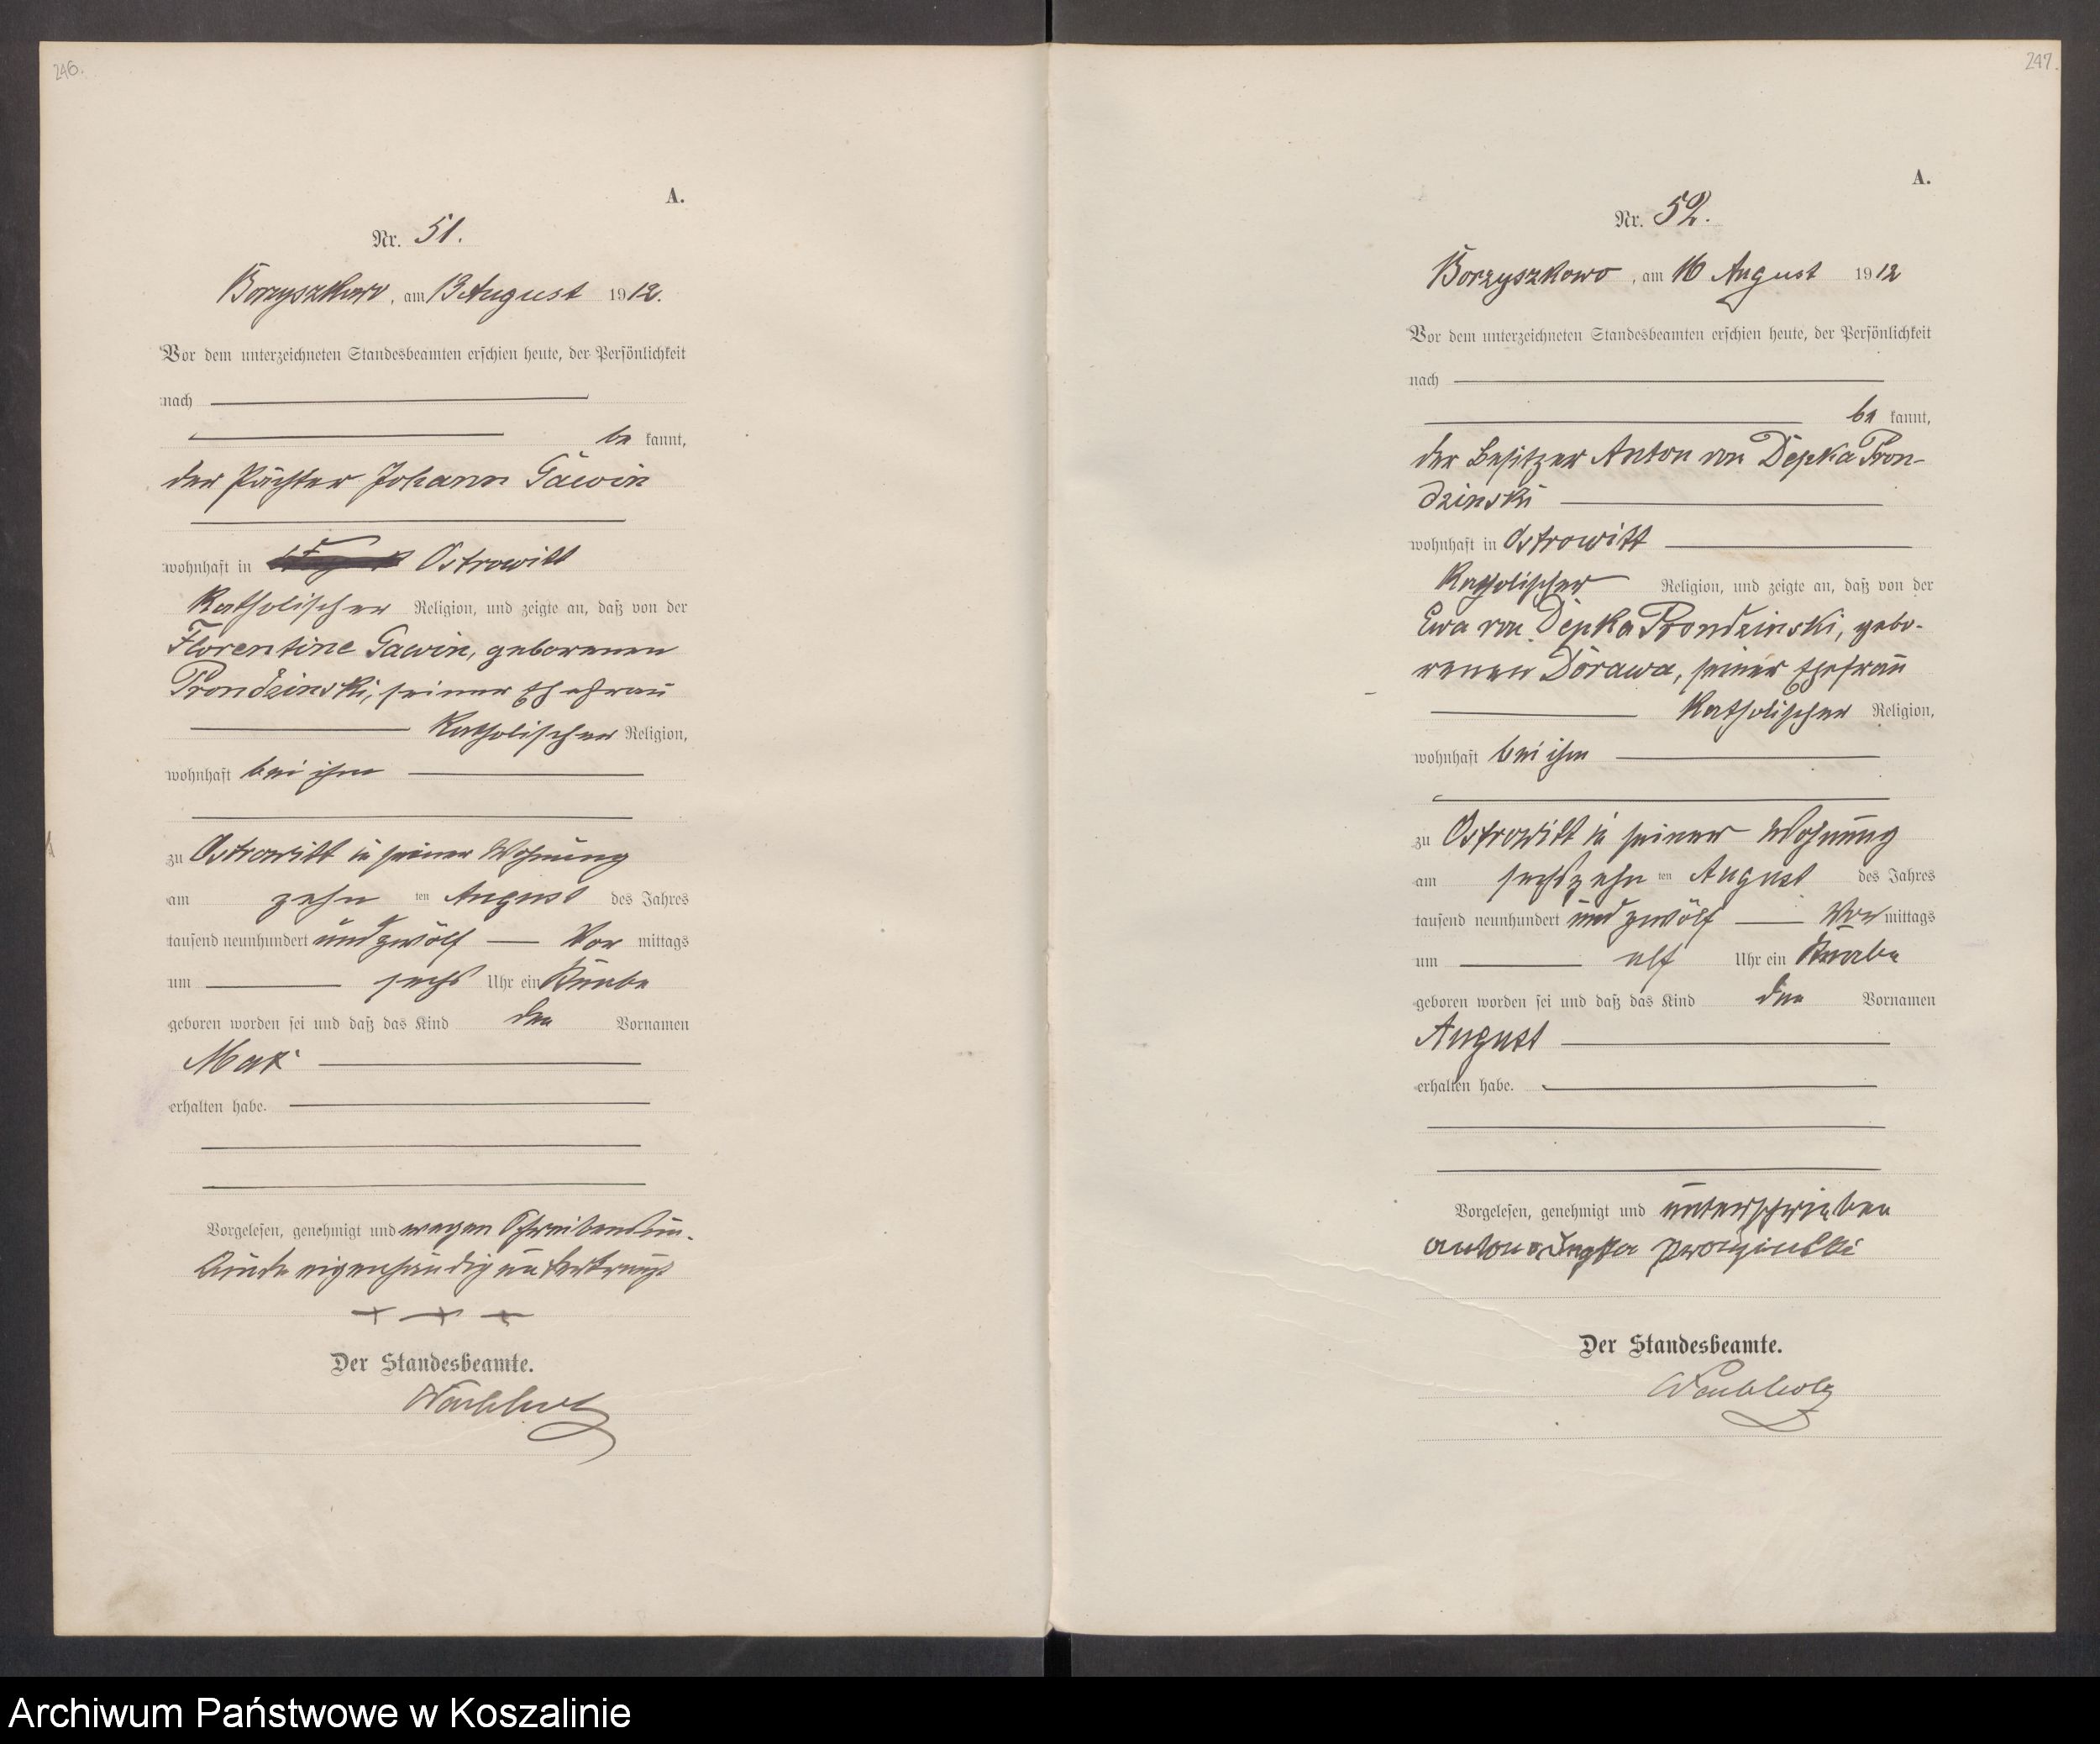 246.
A.
Nr. 51.
Borzyszkowo, am 13 August 1912.
Vor dem unterzeichneten Standesbeamten erschien heute, der Persönlichkeit
nach
be kannt,
der Pächter Johann Gawin
wohnhaft in Ostrowitt
katholischer Religion, und zeigte an, daß von der
Florentine Gawin, geborenen
Prondzinski, seiner Ehefrau
katholischer Religion,
wohnhaft bei ihm
zu Ostrowitt in seiner Wohnung
am zehn ten August des Jahres
tausend neunhundert und zwölf Vor mittags
um sechs Uhr ein Knabe
geboren worden sei und daß das Kind den Vornamen
Max
erhalten habe.
Vorgelesen, genehmigt und wegen Schreibensun-
kunde eigenhändig unterkreuzt
+ + +
Der Standesbeamte.
Wachholz
247.
A.
Nr. 52.
Borzyszkowo, am 16 August 1912
Vor dem unterzeichneten Standesbeamten erschien heute, der Persönlichkeit
nach
be kannt,
der Besitzer Anton von Depka Pron-
dzinski
wohnhaft in Ostrowitt
katholischer Religion, und zeigte an, daß von der
Ewa von Depka Prondzinski, gebo-
renen Dorawa, seiner Ehefrau
katholischer Religion,
wohnhaft bei ihm
zu Ostrowitt in seiner Wohnung
am sechszehn ten August des Jahres
tausend neunhundert und zwölf Vor mittags
um elf Uhr ein Knabe
geboren worden sei und daß das Kind den Vornamen
August
erhalten habe.
Vorgelesen, genehmigt und unterschrieben
Anton v Depka
Der Standesbeamte.
Wachholz
Archiwum Państwowe w Koszalinie